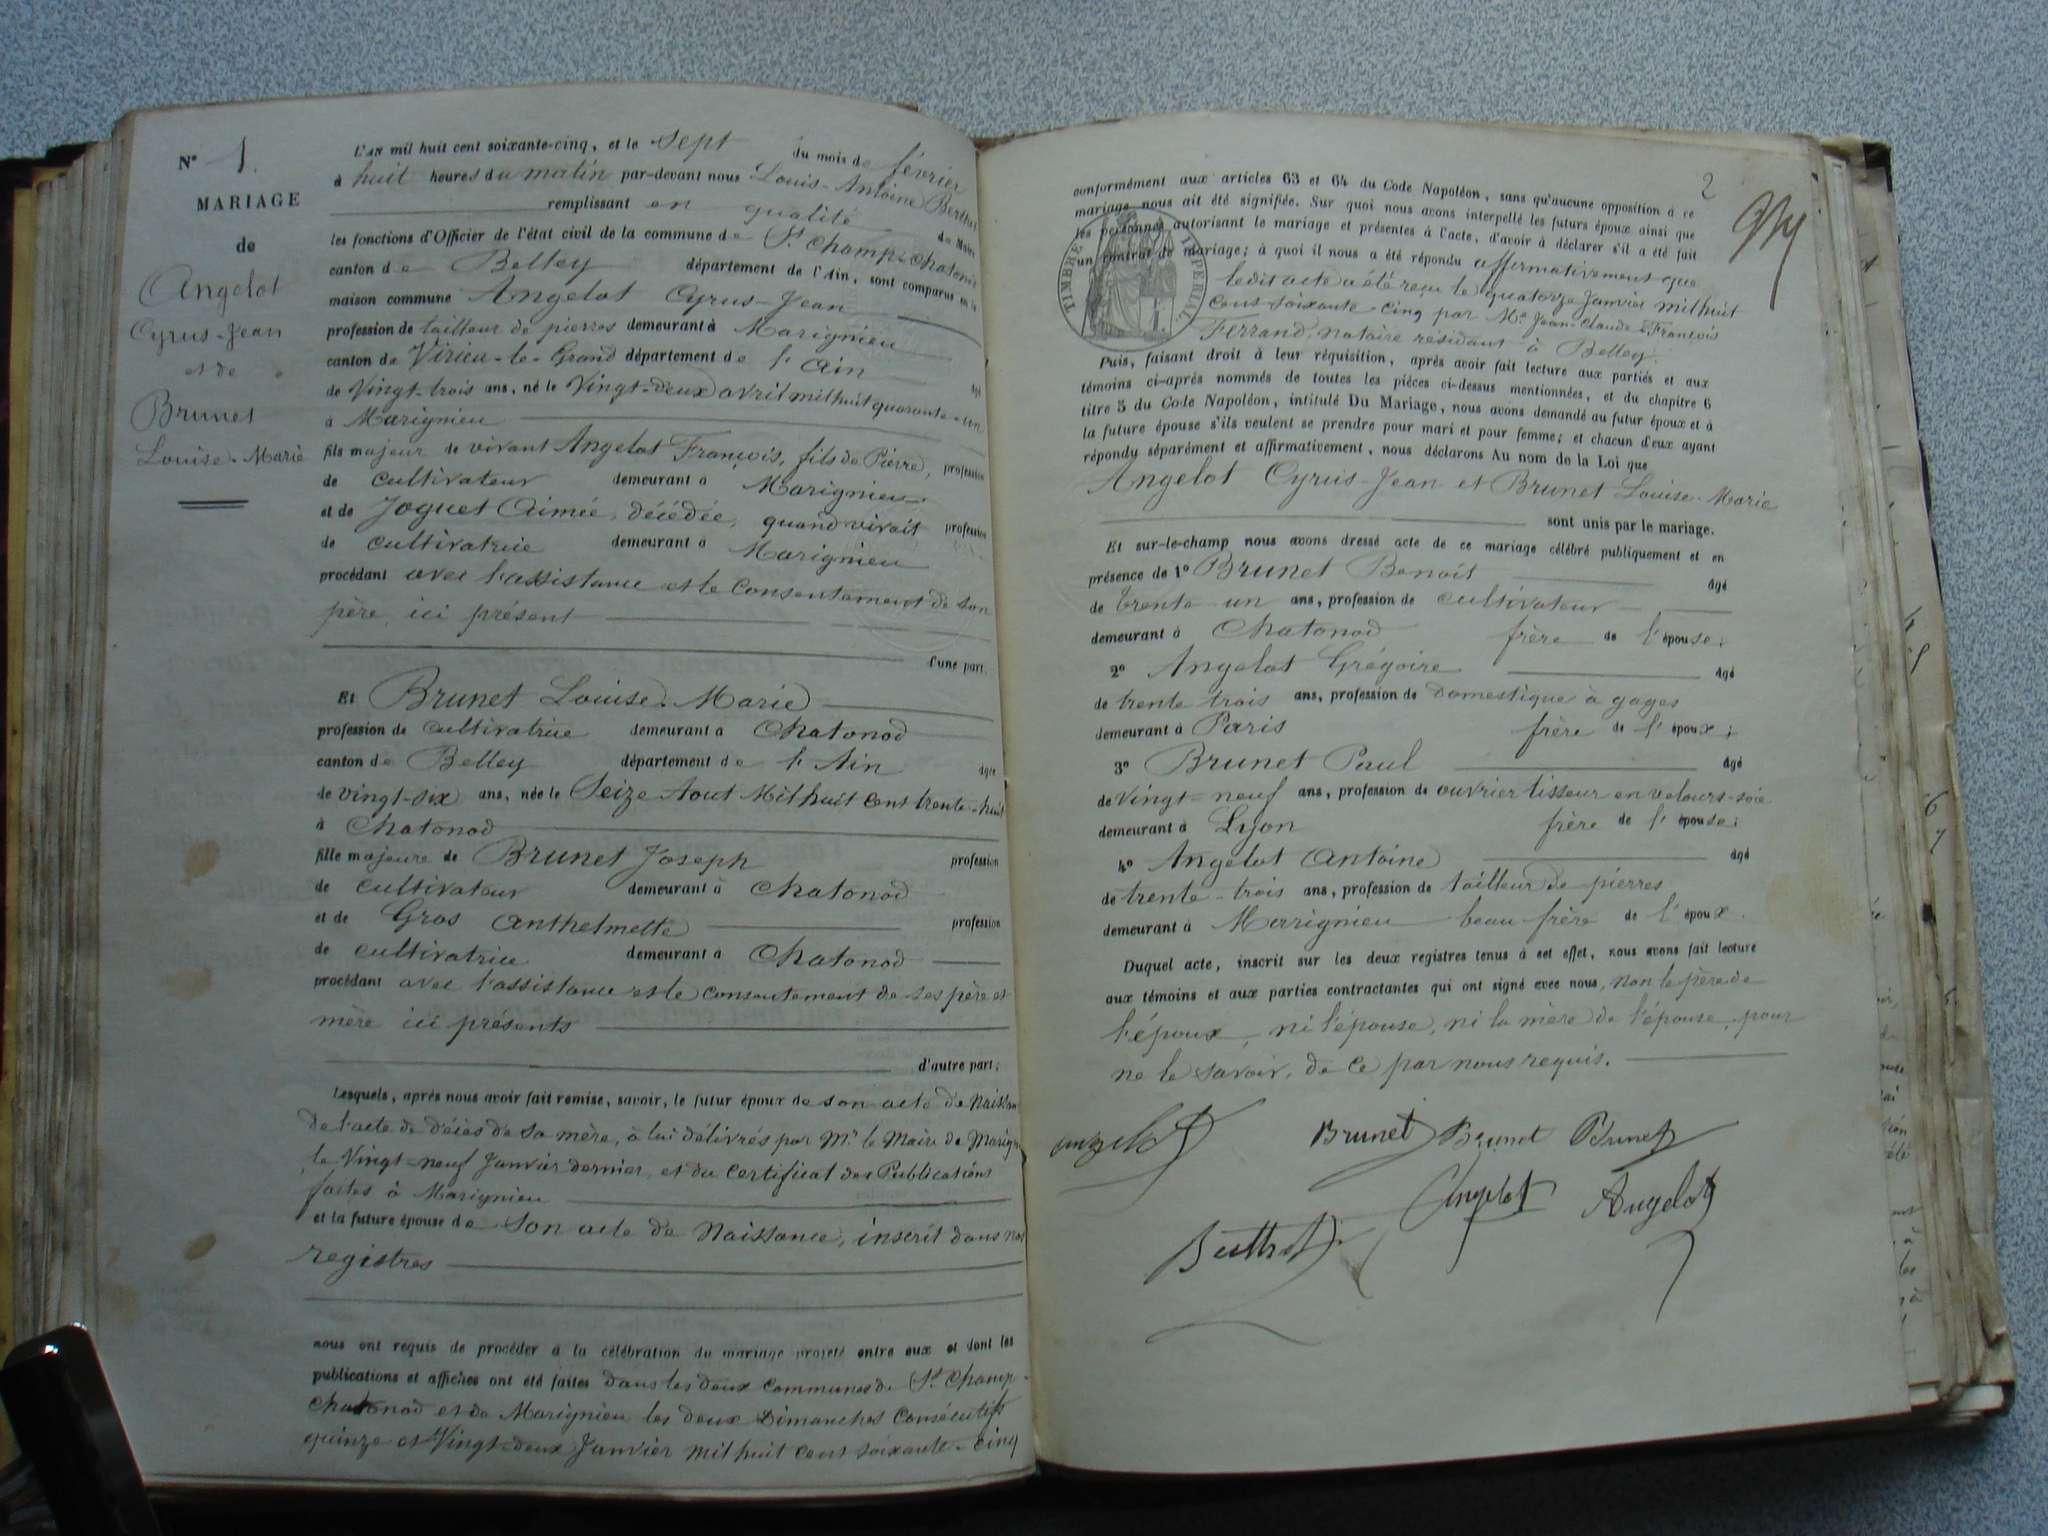 N° 1.
MARIAGE
de
Angelot
Cyrus-Jean
et de
Brunet
Louise-Marie
L'AN mil huit cent soixante-cinq, et le Sept du mois de février
à huit heures du matin par-devant nous Louis-Antoine
remplissant en qualité de Maire
les fonctions d'Officier de l'état civil de la commune de St Champ-Chatonod
canton de Belley département de l'Ain, sont comparus en la
maison commune Angelot Cyrus-Jean
profession de tailleur de pierres demeurant à Marignieu
canton de Virieu-le-Grand département de l'Ain âgé
de Vingt-trois ans, né le Vingt-deux avril mil huit quarante-un
à Marignieu
fils majeur de vivant Angelot François, fils de Pierre, profession
de cultivateur demeurant à Marignieu
et de Joguet Aimée, décédée, quand vivait profession
de cultivatrice demeurant à Marignieu
procédant avec l'assistance et le consentement de son
père, ici présent
d'une part.
Et Brunet Louise-Marie
profession de cultivatrice demeurant à Chatonod
canton de Belley département de l'Ain âgée
de vingt-six ans, née le Seize Aout Mil huit cent trente-huit
à Chatonod
fille majeure de Brunet Joseph profession
de cultivateur demeurant à Chatonod
et de Gros Anthelmette profession
de cultivatrice demeurant à Chatonod
procédant avec l'assistance et le consentement de ses père et
mère ici présents
d'autre part;
Lesquels, après nous avoir fait remise, savoir, le futur époux de son acte de
de l'acte de décès de sa mère, à lui délivrés par Mr le Maire de
le Vingt-neuf Janvier dernier, et du certificat des Publications
faites à Marignieu
et la future épouse de Son acte de Naissance, inscrit dans nos
registres
nous ont requis de procéder à la célébration du mariage projeté entre eux et dont les
publications et affiches ont été faites dans les deux communes de St Champ-
Chatonod et de Marignieu les deux Dimanches consécutifs
quinze et Vingt-deux Janvier mil huit cent soixante-cinq
2
conformément aux articles 63 et 64 du Code Napoléon, sans qu'aucune opposition à ce
mariage nous ait été signifiée. Sur quoi nous avons interpellé les futurs époux ainsi que
les personnes autorisant le mariage et présentes à l'acte, d'avoir à déclarer s'il a été fait
un contrat de mariage; à quoi il nous a été répondu affirmativement que
ledit acte a été reçu le quatorze Janvier mil huit
cent soixante-cinq par Me Jean-Claude-François
Ferrand, notaire résidant à Belley.
TIMBRE IMPERIAL
Puis, faisant droit à leur réquisition, après avoir fait lecture aux parties et aux
témoins ci-après nommés de toutes les pièces ci-dessus mentionnées, et du chapitre 6
titre 5 du Code Napoléon, intitulé Du Mariage, nous avons demandé au futur époux et à
la future épouse s'ils veulent se prendre pour mari et pour femme; et chacun d'eux ayant
répondu séparément et affirmativement, nous déclarons Au nom de la Loi que
Angelot Cyrus-Jean et Brunet Louise-Marie
sont unis par le mariage.
Et sur-le-champ nous avons dressé acte de ce mariage célébré publiquement et en
présence de 1° Brunet Benoit âgé
de trente-un ans, profession de cultivateur
demeurant à Chatonod frère de l'épouse;
2° Angelot Grégoire âgé
de trente trois ans, profession de Domestique à gages
demeurant à Paris frère de l'époux;
3° Brunet Paul âgé
de Vingt-neuf ans, profession de ouvrier tisseur en velours-soie
demeurant à Lyon frère de l'épouse;
4° Angelot Antoine âgé
de trente-trois ans, profession de tailleur de pierres
demeurant à Marignieu beau-frère de l'époux.
Duquel acte, inscrit sur les deux registres tenus à cet effet, nous avons fait lecture
aux témoins et aux parties contractantes qui ont signé avec nous, non le père de
l'époux, ni l'épouse, ni la mère de l'épouse, pour
ne le savoir, de ce par nous requis.
angelot Brunet Brunet Brunet
Angelot Angelot